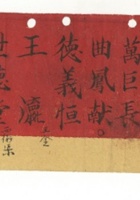 萬巨長
曲鳳獻
德義恒
王瀛
世德堂